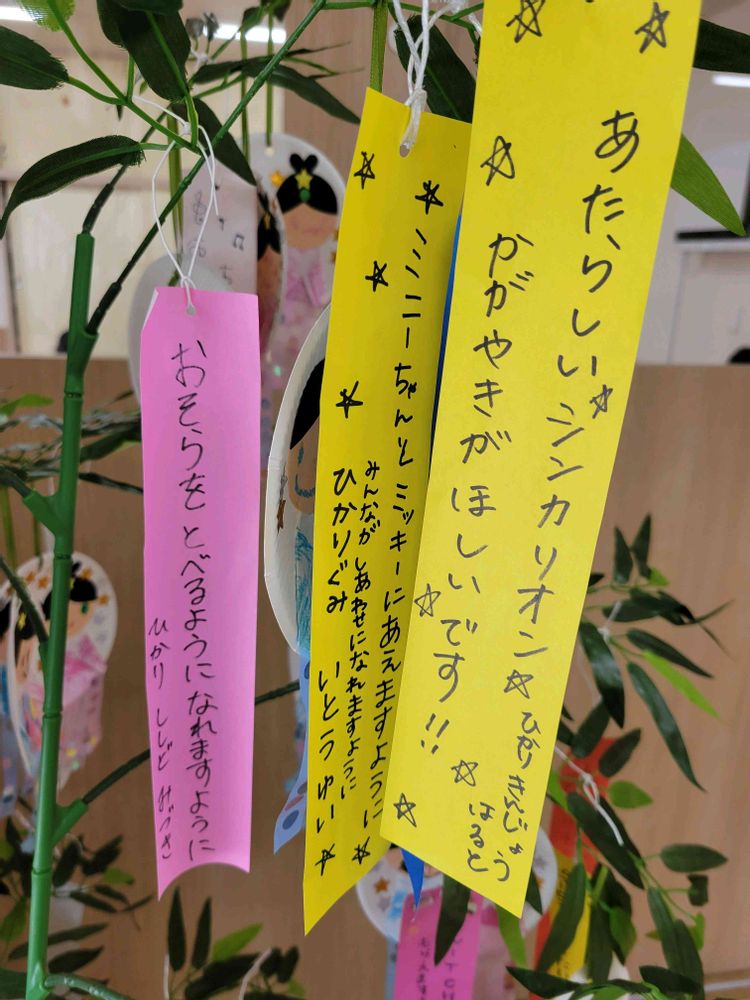 あたらしいシンカリオン
かがやきがほしいです!!
ひかり きんじょう
はると
ミニーちゃんとミッキーにあえますように
みんなが しあわせになれますように
ひかりぐみ いとうゆい
おそらをとべるようになれますように
ひかり ししど みつき